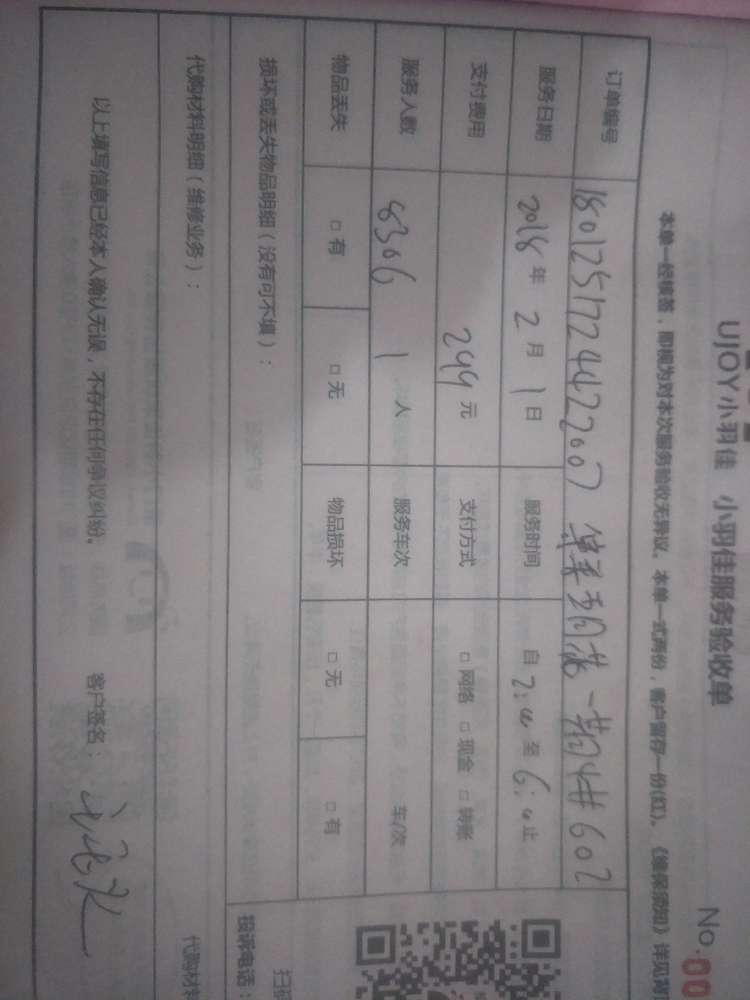 UJOY小羽佳 小羽佳服务验收单
No.00
本单一经接签，即视为对本次服务验收无异议。本单一式两份，客户留存一份(红)。《维保须知》详见背
订单编号 1801251724422007 602
服务日期 2018年2月1日 服务时间 自2:00至6:00止
支付费用 299元 支付方式 □网络 □现金 □转账
服务人数 8306 1人 服务车次 车/次
物品丢失 □有 □无 物品损坏 □无 □有
损坏或丢失物品明细（没有可不填）：
代购材料明细（维修业务）：
代购材
以上填写信息已经本人确认无误，不存在任何争议纠纷。 客户签名：
扫
投诉电话：